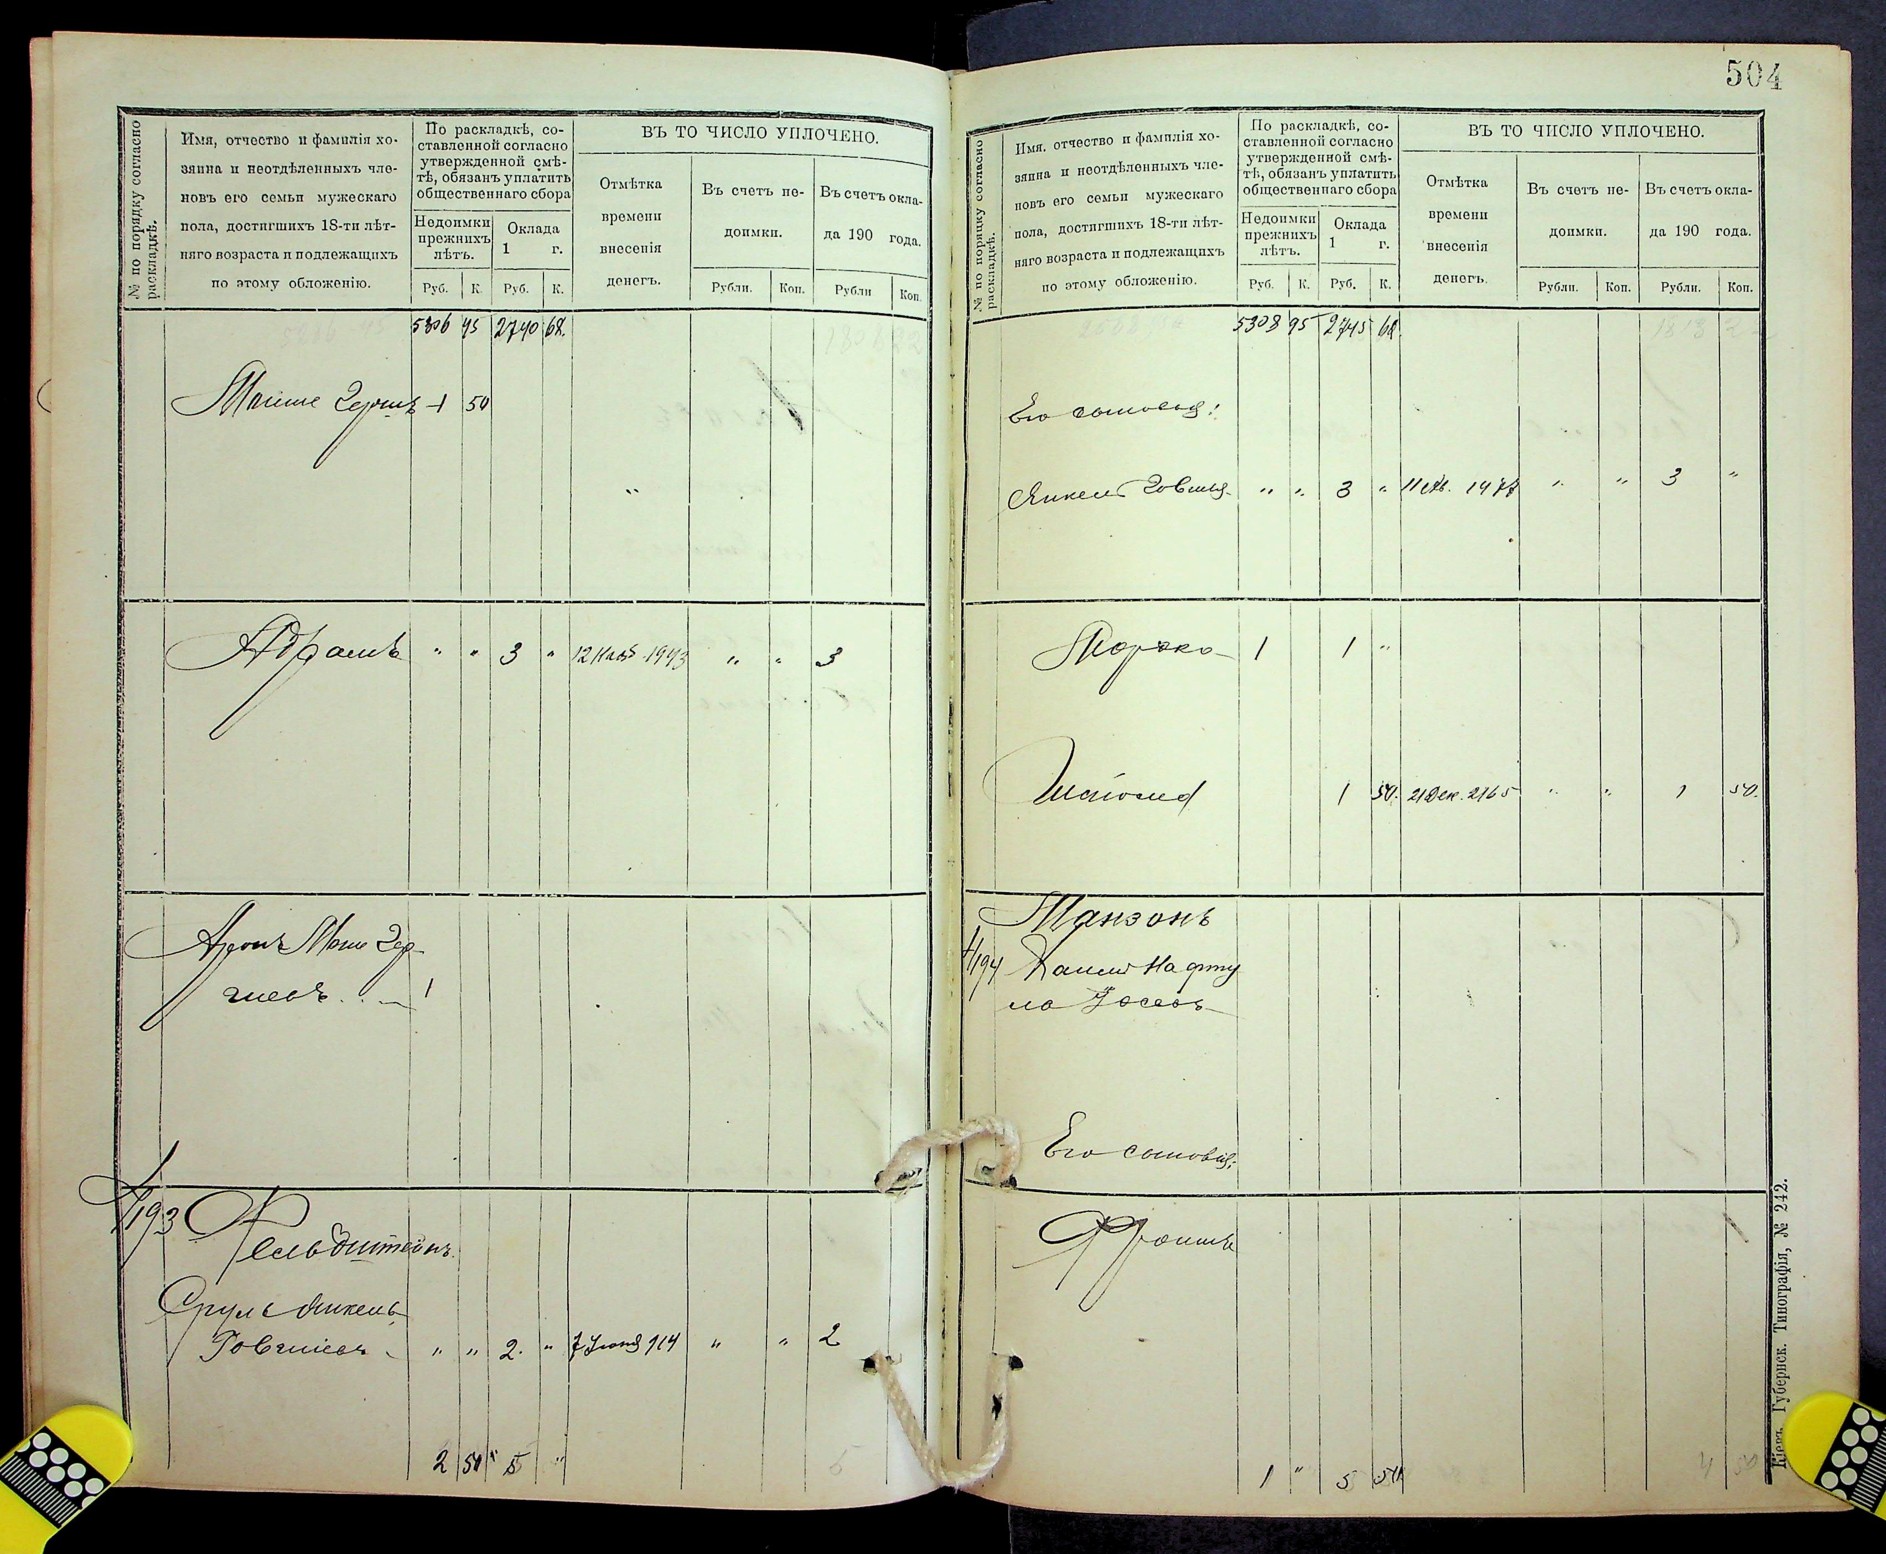 504
№ по порядку согласно раскладкѣ.
Имя, отчество и фамилія хо-
зяина и неотдѣленныхъ чле-
новъ его семьи мужескаго
пола, достигшихъ 18-ти лѣт-
няго возраста и подлежащихъ
по этому обложенію.
По раскладкѣ, со-
ставленной согласно
утвержденной смѣ-
тѣ, обязанъ уплатить
общественнаго сбора
Недоимки
прежнихъ
лѣтъ.
Оклада
1 г.
Руб. К. Руб. К.
ВЪ ТО ЧИСЛО УПЛОЧЕНО.
Отмѣтка
времени
внесенія
денегъ.
Въ счетъ не-
доимки.
Въ счетъ окла-
да 190 года.
Рубли. Коп. Рубли Коп.
5306 45 2740 68.
1 50
"
Абрамъ " " 3 " 1943 " " 3
Аронъ
1
193
Фельдштейнъ
Сруль Янкель
" " 2. " 7 914 " " 2
2 50 " 5 "
5
№ по порядку согласно раскладкѣ.
Имя, отчество и фамилія хо-
зяина и неотдѣленныхъ чле-
новъ его семьи мужескаго
пола, достигшихъ 18-ти лѣт-
няго возраста и подлежащихъ
по этому обложенію.
По раскладкѣ, со-
ставленной согласно
утвержденной смѣ-
тѣ, обязанъ уплатить
общественнаго сбора
Недоимки
прежнихъ
лѣтъ.
Оклада
1 г.
Руб. К. Руб. К.
ВЪ ТО ЧИСЛО УПЛОЧЕНО.
Отмѣтка
времени
внесенія
денегъ.
Въ счетъ не-
доимки.
Въ счетъ окла-
да 190 года.
Рубли. Коп. Рубли. Коп.
5308 95 2745 68.
Его сыновья:
Янкель " " 3 " " " 3 "
Мошко 1 1 "
1 50. 21 Дек. 2165 " " 1 50.
Манзонъ
194
Нафту
ла
Его сыновья:
Фроимъ
1 " 5 50
4 50
Кіевъ. Губернск. Типографія, № 242.